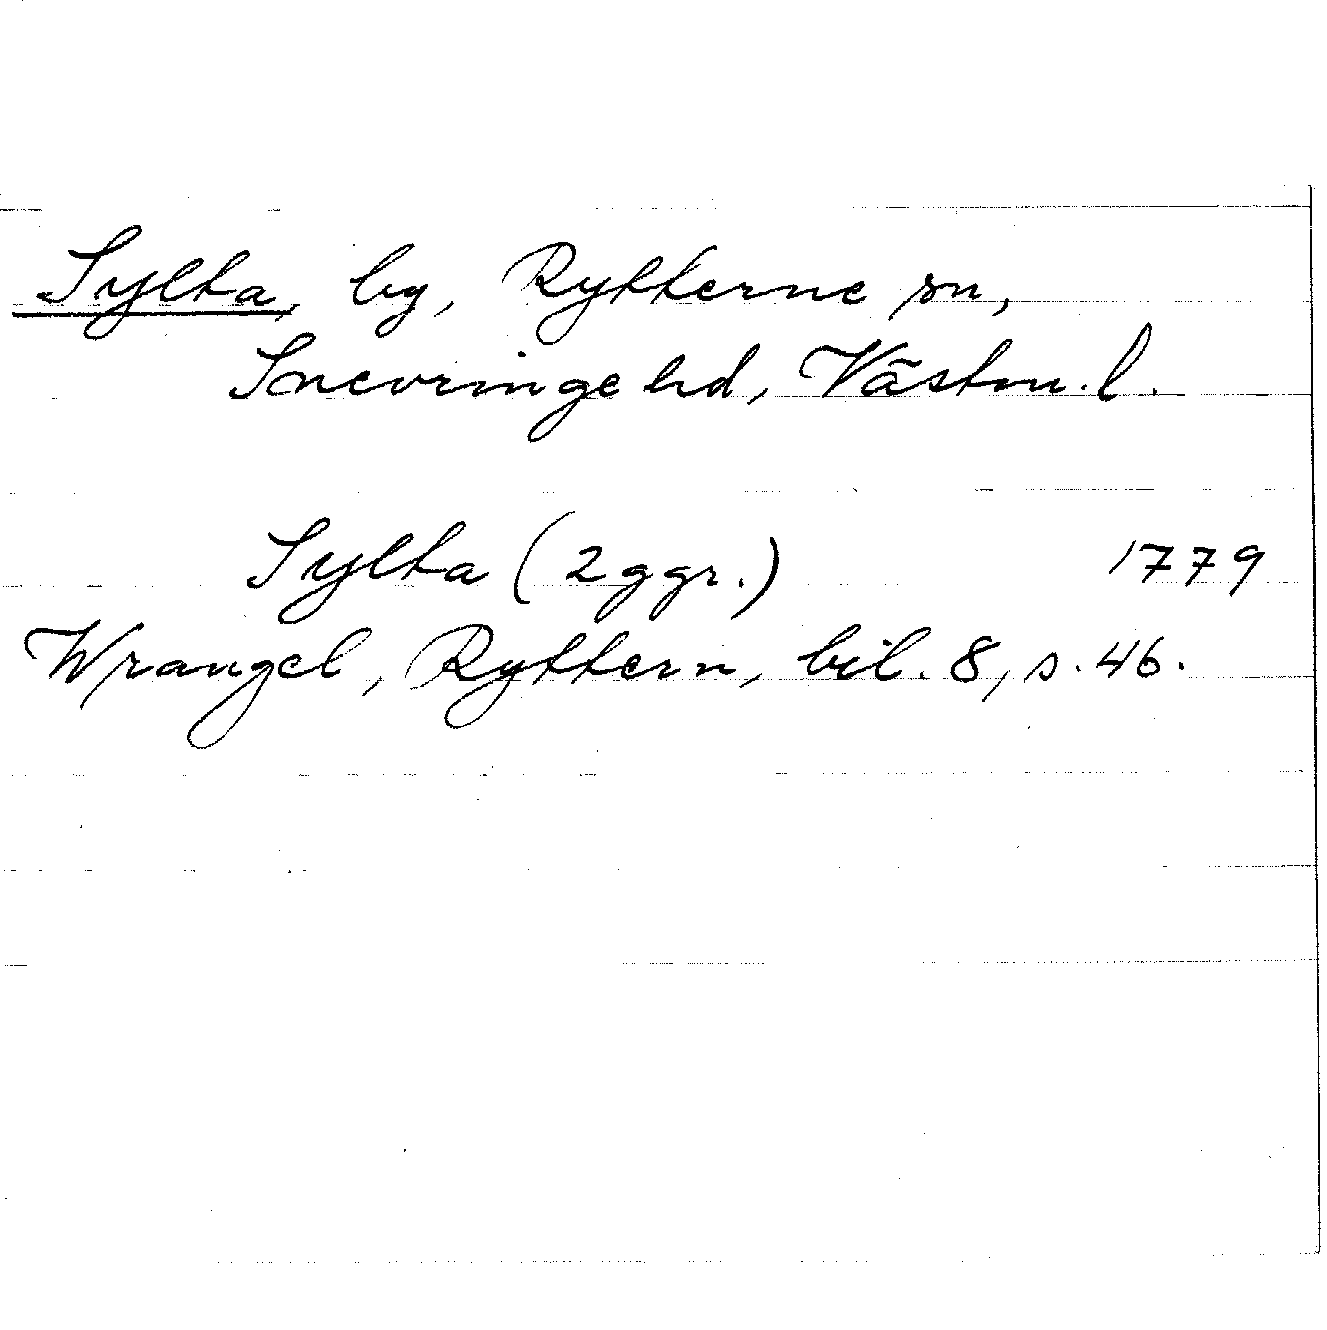 Sylta, by, Rytterne sn,
Snevringe hd, Västm. l.
Sylta (2 ggr.) 1779
Wrangel, Ryttern, bil. 8, s. 46.